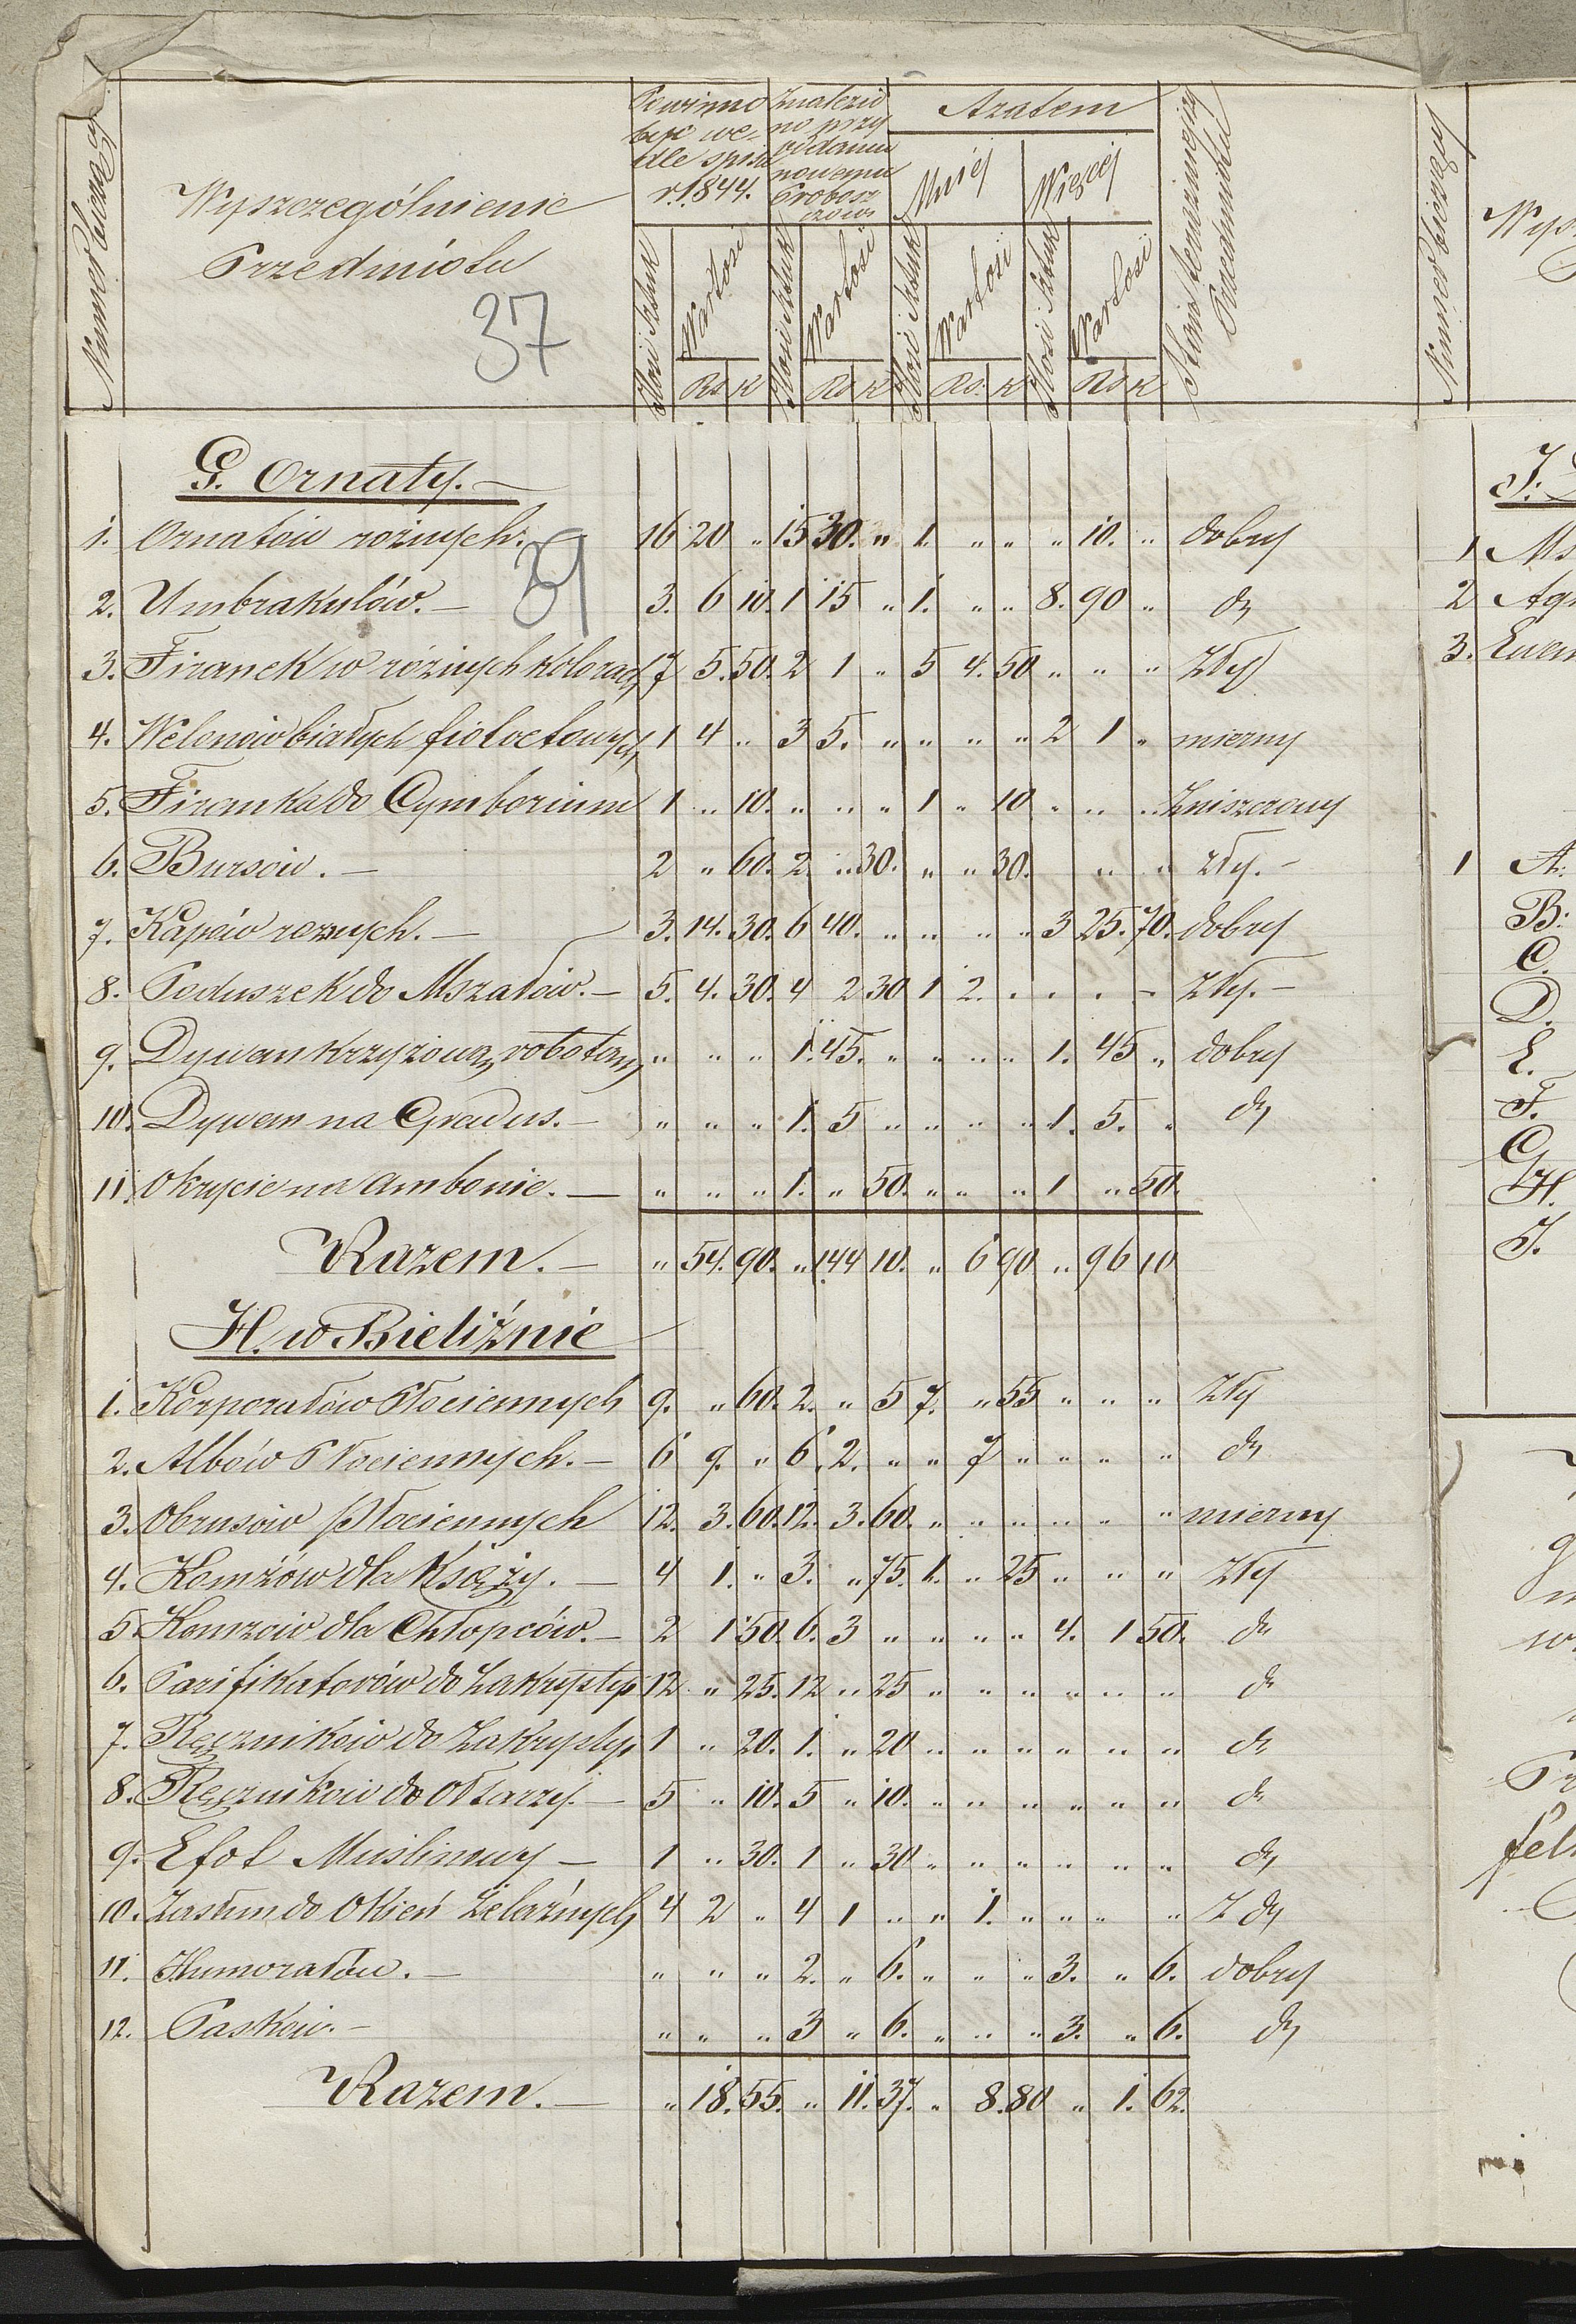 Numer bieżący
Wyszczególnienie
Przedmiotu
37
Powinno być wedle spisu r. 1844.
Znalezio no przy oddaniu nowemu Probosz czowi
Azatem
Mniéj
Więcéj
Stan teraźniejszy Przedmiotu
Ilość Sztuk Wartość Ilość Sztuk Wartość Ilość Sztuk Wartość Ilość Sztuk Wartość
Rs K Rs K Rs. K Rs K
G. Ornaty. —
1. Ornatów różnych. 16 20 „ 15 30. „ 1. „ „ „ 10. „ dobry
39
2. Umbrakulów. — 3. 6 10. 1 15 „ 1. „ „ 8. 90 „ do
3. Firanek w różnych kolorach 7 5. 50. 2 1 „ 5 4. 50 „ „ „ zły
4. Welonów białych fioletowych 1 4 „ 3 5. „ „ „ „ 2 1 „ mierny
5. Firanka do Cymborium 1 „ 10. „ „ „ 1 „ 10 „ „ „ Zniszczony
6. Bursów. — 2 „ 60. 2. „ 30. „ „ 30. „ „ zły. —
7. Kapów roznych. — 3. 14. 30. 6 40. „ „ „ „ 3 25. 70. dobry
8. Poduszek do Mszałów. — 5. 4. 30. 4 2 30 1 2. . . . — Zły. —
9. Dywan krzyżową robotą „ „ „ 1. 45. „ „ „ „ 1. 45 „ dobry
10. Dywan na Gradus. — „ „ „ 1. 5 „ „ „ „ 1. 5. „ do
11. Okrycie na ambonie. — „ „ „ 1. „ 50. „ „ „ 1 „ 50.
Razem. — „ 54. 90. „ 144 10. „ 6 90 „ 96 10
H. w Bieliźnie
1. Korporałów Płóciennych 9. „ 60. 2. „ 5 7. „ 55 „ „ „ Zły
2. Albów Płóciennych. — 6 9. „ 6. 2. „ „ 7 „ „ „ „ do
3. Obrusów płóciennych 12. 3. 60. 12. 3. 60. „ „ „ „ „ „ mierny
4. Komżów dla Księży. — 4 1. „ 3. „ 75. 1. „ 25 „ „ „ Zły
5 Komżów dla Chłopców. — 2 1 50. 6. 3 „ „ „ „ 4. 1 50. do
6. Parifikatorów do Zakrystyi 12 „ 25. 12 „ 25 „ „ „ „ „ „ do
7. Ręczników do Zakrystyi 1 „ 20. 1. „ 20 „ „ „ „ „ „ do
8. Ręczników do Ołtarzy. — 5 „ 10. 5 „ 10. „ „ „ „ „ „ do
9. Efot Muslinowy — 1 „ 30. 1 „ 30 „ „ „ „ „ „ do
10. Zasłon do Okień żelaznych 4 2 „ 4 1 „ „ 1. „ „ „ „ Z do
11. Humorałów. — „ „ „ 2. „ 6. „ „ „ 3. „ 6. dobry
12. Pasków. — „ „ „ 3 „ 6. „ „ „ 3. „ 6. do
Razem. — „ 18. 55. „ 11. 37. „ 8. 80 „ 1. 62.
Numer bieżący
Wysz
J.
1 Ms
2 Ag
3. Ewan
1 A.
B.
C.
D.
E.
F.
G
H.
J.